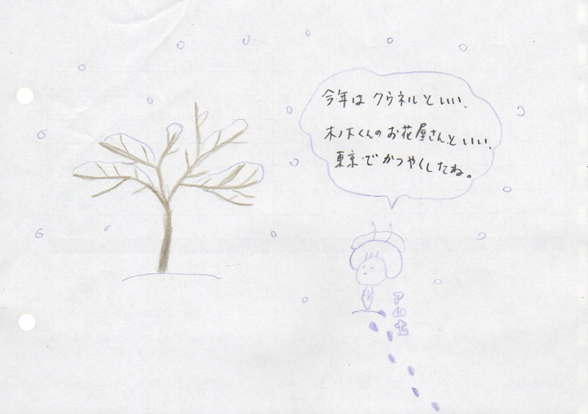 今年は クウネルといい、
木ノ下くんのお花屋さんといい、
東京でかつやくしたね。